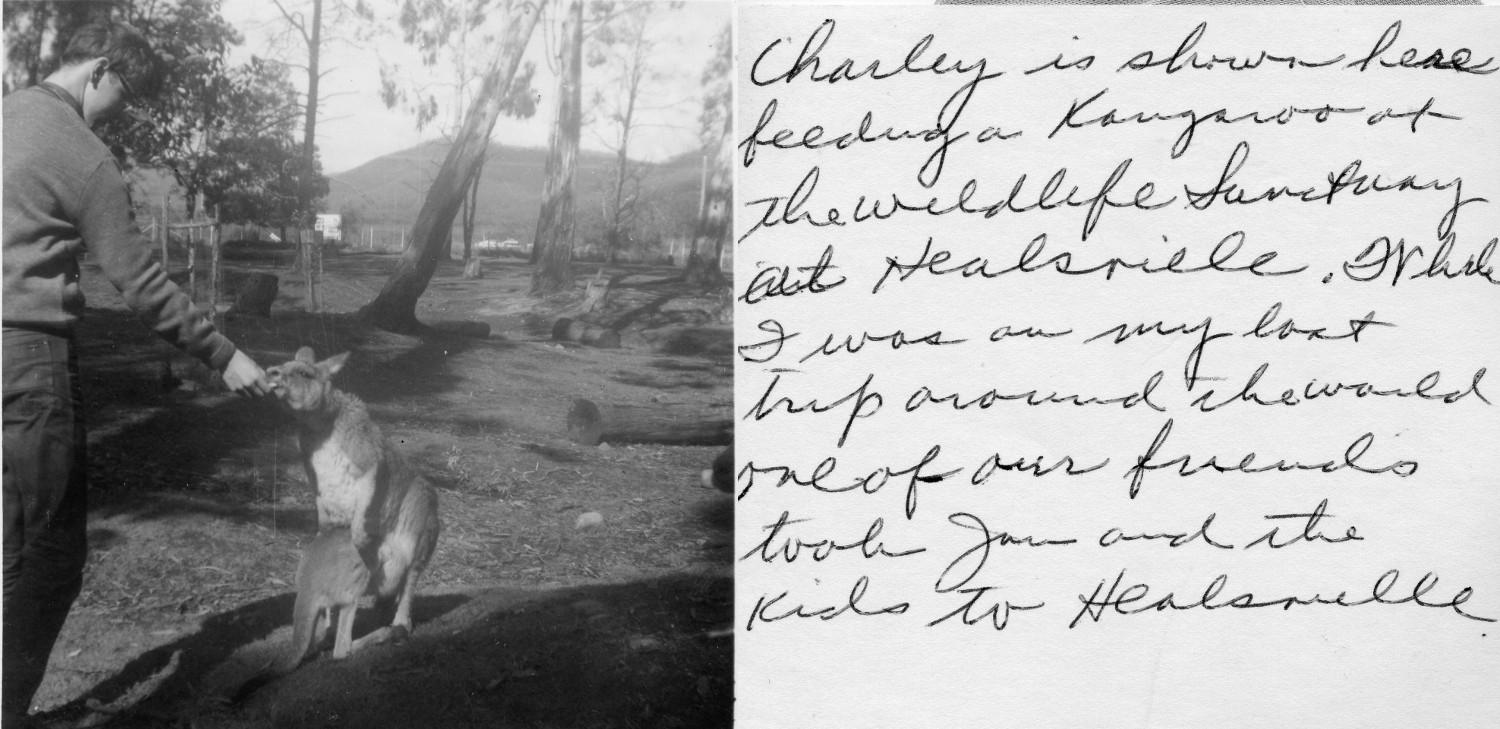 Charley is shown here
feeding a Kangaroo at
the wildlife Sanctuary
at Healsville. While
I was on my last
trip around the world
one of our friends
took Jan and the
kids to Healsville